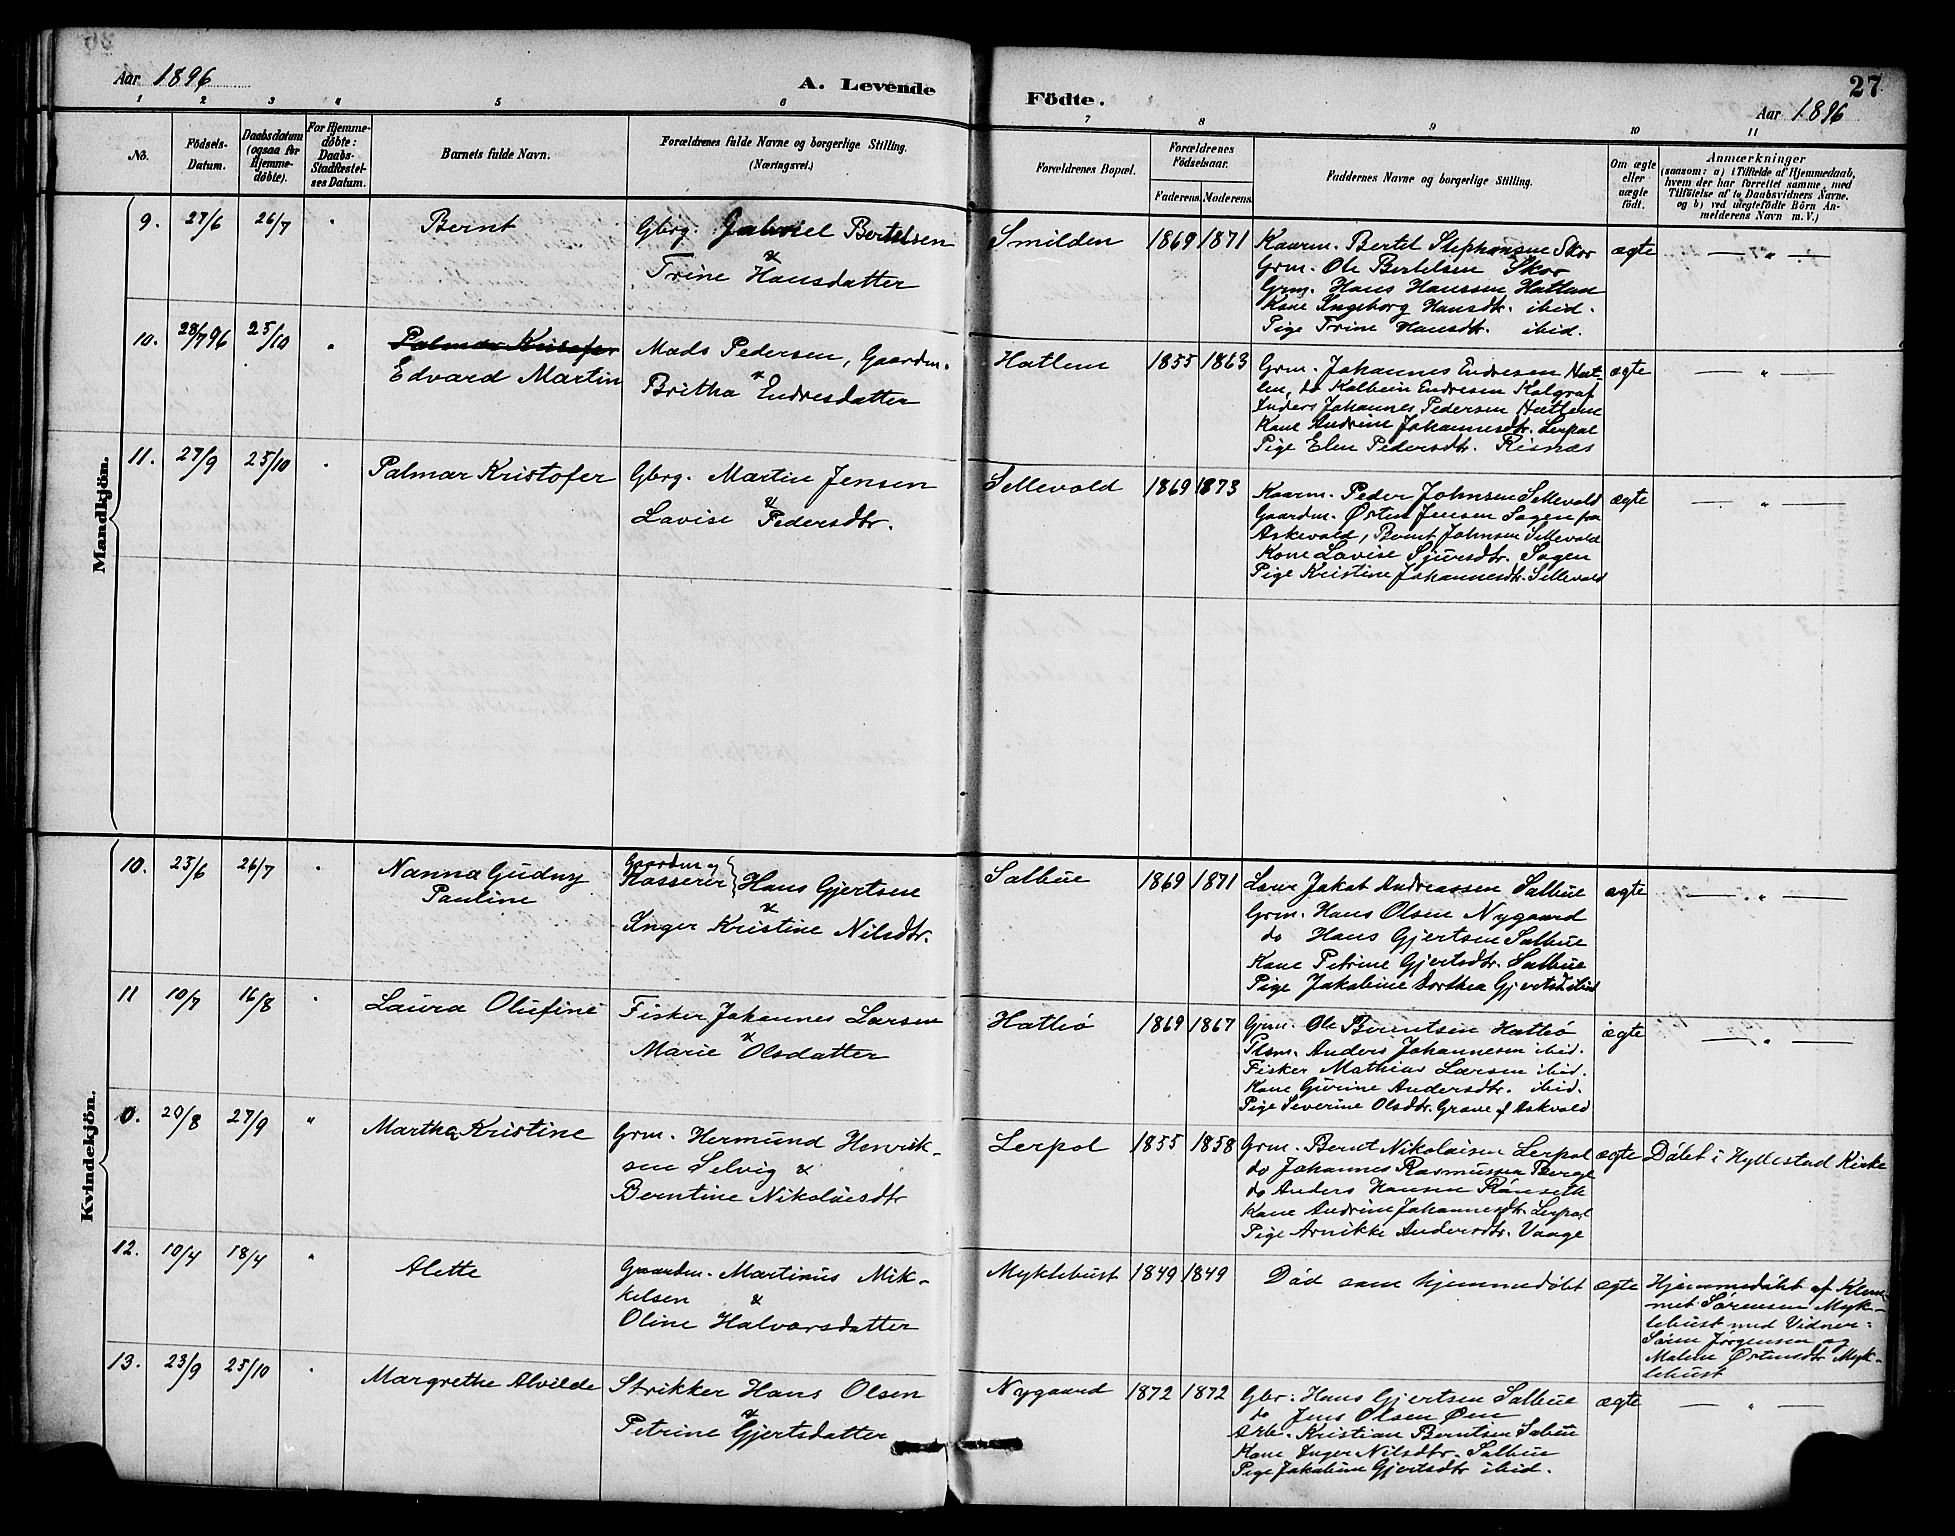 Aar 1896
A. Levende
Födte.
27
Aar 1896
1 2 3 4 5 6 7 8 9 10 11
No.
Födsels-
Datum.
Daabsdatum
(ogsaa for
Hjemme-
döbte).
For Hjemme-
döbte:
Daabs-
Stadfæstel-
ses Datum.
Barnets fulde Navn.
Forældrenes fulde Navne og borgerlige Stilling.
(Næringsvei.)
Forældrenes Bopæl.
Forældrenes
Födselsaar.
Faderens Moderens
Faddernes Navne og borgerlige Stilling.
Om ægte
eller
uægte
födt.
Anmærkninger
(saasom: a) i Tilfælde af Hjemmedaab,
hvem der har forrettet samme, med
Tilföielse af to Daabsvidners Navne.
og b) ved uægtefödte Börn An-
melderens Navn m. V.)
Mandkjön.
9. 27/6 26/7 " Bernt
Gbrg. Gabriel Bertelsen
&
Trine Hansdatter
Smilden 1869 1871
Kaarm. Bertel Stephansen Skor
Grm. Ole Bertelsen Skor
Grm. Hans Hanssen Hatlem
Kone Ingeborg Hansdtr. ibid.
Pige Trine Hansdtr. ibid.
ægte — " —
10. 28/7 96 25/10 " Palmar Kristofer
Edvard Martin
Mads Pedersen, Gaardm.
&
Britha Endresdatter
Hatlem 1855 1863
Grm. Johannes Endresen Hat-
lem, do Kolbein Endresen Kolgraf
Anders Johannes Pedersen Hatlem
Kone Andrine Johannesdtr. Lerpol
Pige Elen Pedersdtr. Risnæs
ægte — " —
11. 27/9 25/10 " Palmar Kristofer
Gbrg. Martin Jensen
&
Lavise Pedersdtr.
Sellevold 1869 1873
Kaarm. Peder Johnsen Sellevold
Gaardm. Østen Jensen Sagen fra
Askevold, Bernt Johnsen Sellevold
Kone Lavise Sjursdtr. Sagen
Pige Kristine Johannesdtr. Sellevold
ægte — " —
Kvindekjön.
10. 23/6 26/7 " Nanna Gudny
Pauline
Gaardm og
Kasserer Hans Gjertsen
&
Inger Kristine Nilsdtr.
Salbue 1869 1871
Jakob Andreassen Salbue
Grm. Hans Olsen Nygaard
do Hans Gjertsen Salbue
Kone Petrine Gjertsdtr. Salbue
Pige Jakobine Dorthea Gjertsdtr ibid
ægte — " —
11 10/7 16/8 " Laura Olufine
Fisker Johannes Larsen
&
Marie Olsdatter
Hatleö 1869 1867
Grm. Ole Berntsen Hatleö
Plsm. Anders Johannesen ibid.
Fisker Mathias Larsen ibid.
Kone Gurine Andersdtr. ibid.
Pige Severine Olsdtr. Grave af Askvold
ægte — " —
0. 20/8 27/9 " Martha Kristine
Grm. Hermund Henrik-
sen Selvig &
Berntine Nikolaisdtr
Lerpol 1855 1858
Grm. Bernt Nikolaisen Lerpol
do Johannes Rasmussen Berge
do Anders Hansen Rönseth
Kone Andrine Johannesdtr. Lerpol
Pige Arnikke Andersdtr. Vaage
ægte Döbt i Hyllestad Kirke
12. 10/4 18/4 " Alette
Gaardm. Martinus Mik-
kelsen &
Oline Halvorsdatter
Myklebust 1849 1849
Död som hjemmedöbt
ægte Hjemmedöbt af Klem-
met Sörensen Myk-
lebust med Vidner:
Sören Jörgensen og
Malene Østensdtr Myk-
lebust
13. 23/9 25/10 " Margrethe Alvilde
Strikker Hans Olsen
&
Petrine Gjertsdatter
Nygaard 1872 1872
Gbr. Hans Gjertsen Salbue
do Jens Olsen Øen
Arb. Kristian Berntsen Salbue
Kone Inger Nilsdtr. Salbue
Pige Jakobine Gjertsdtr ibid.
ægte — " —